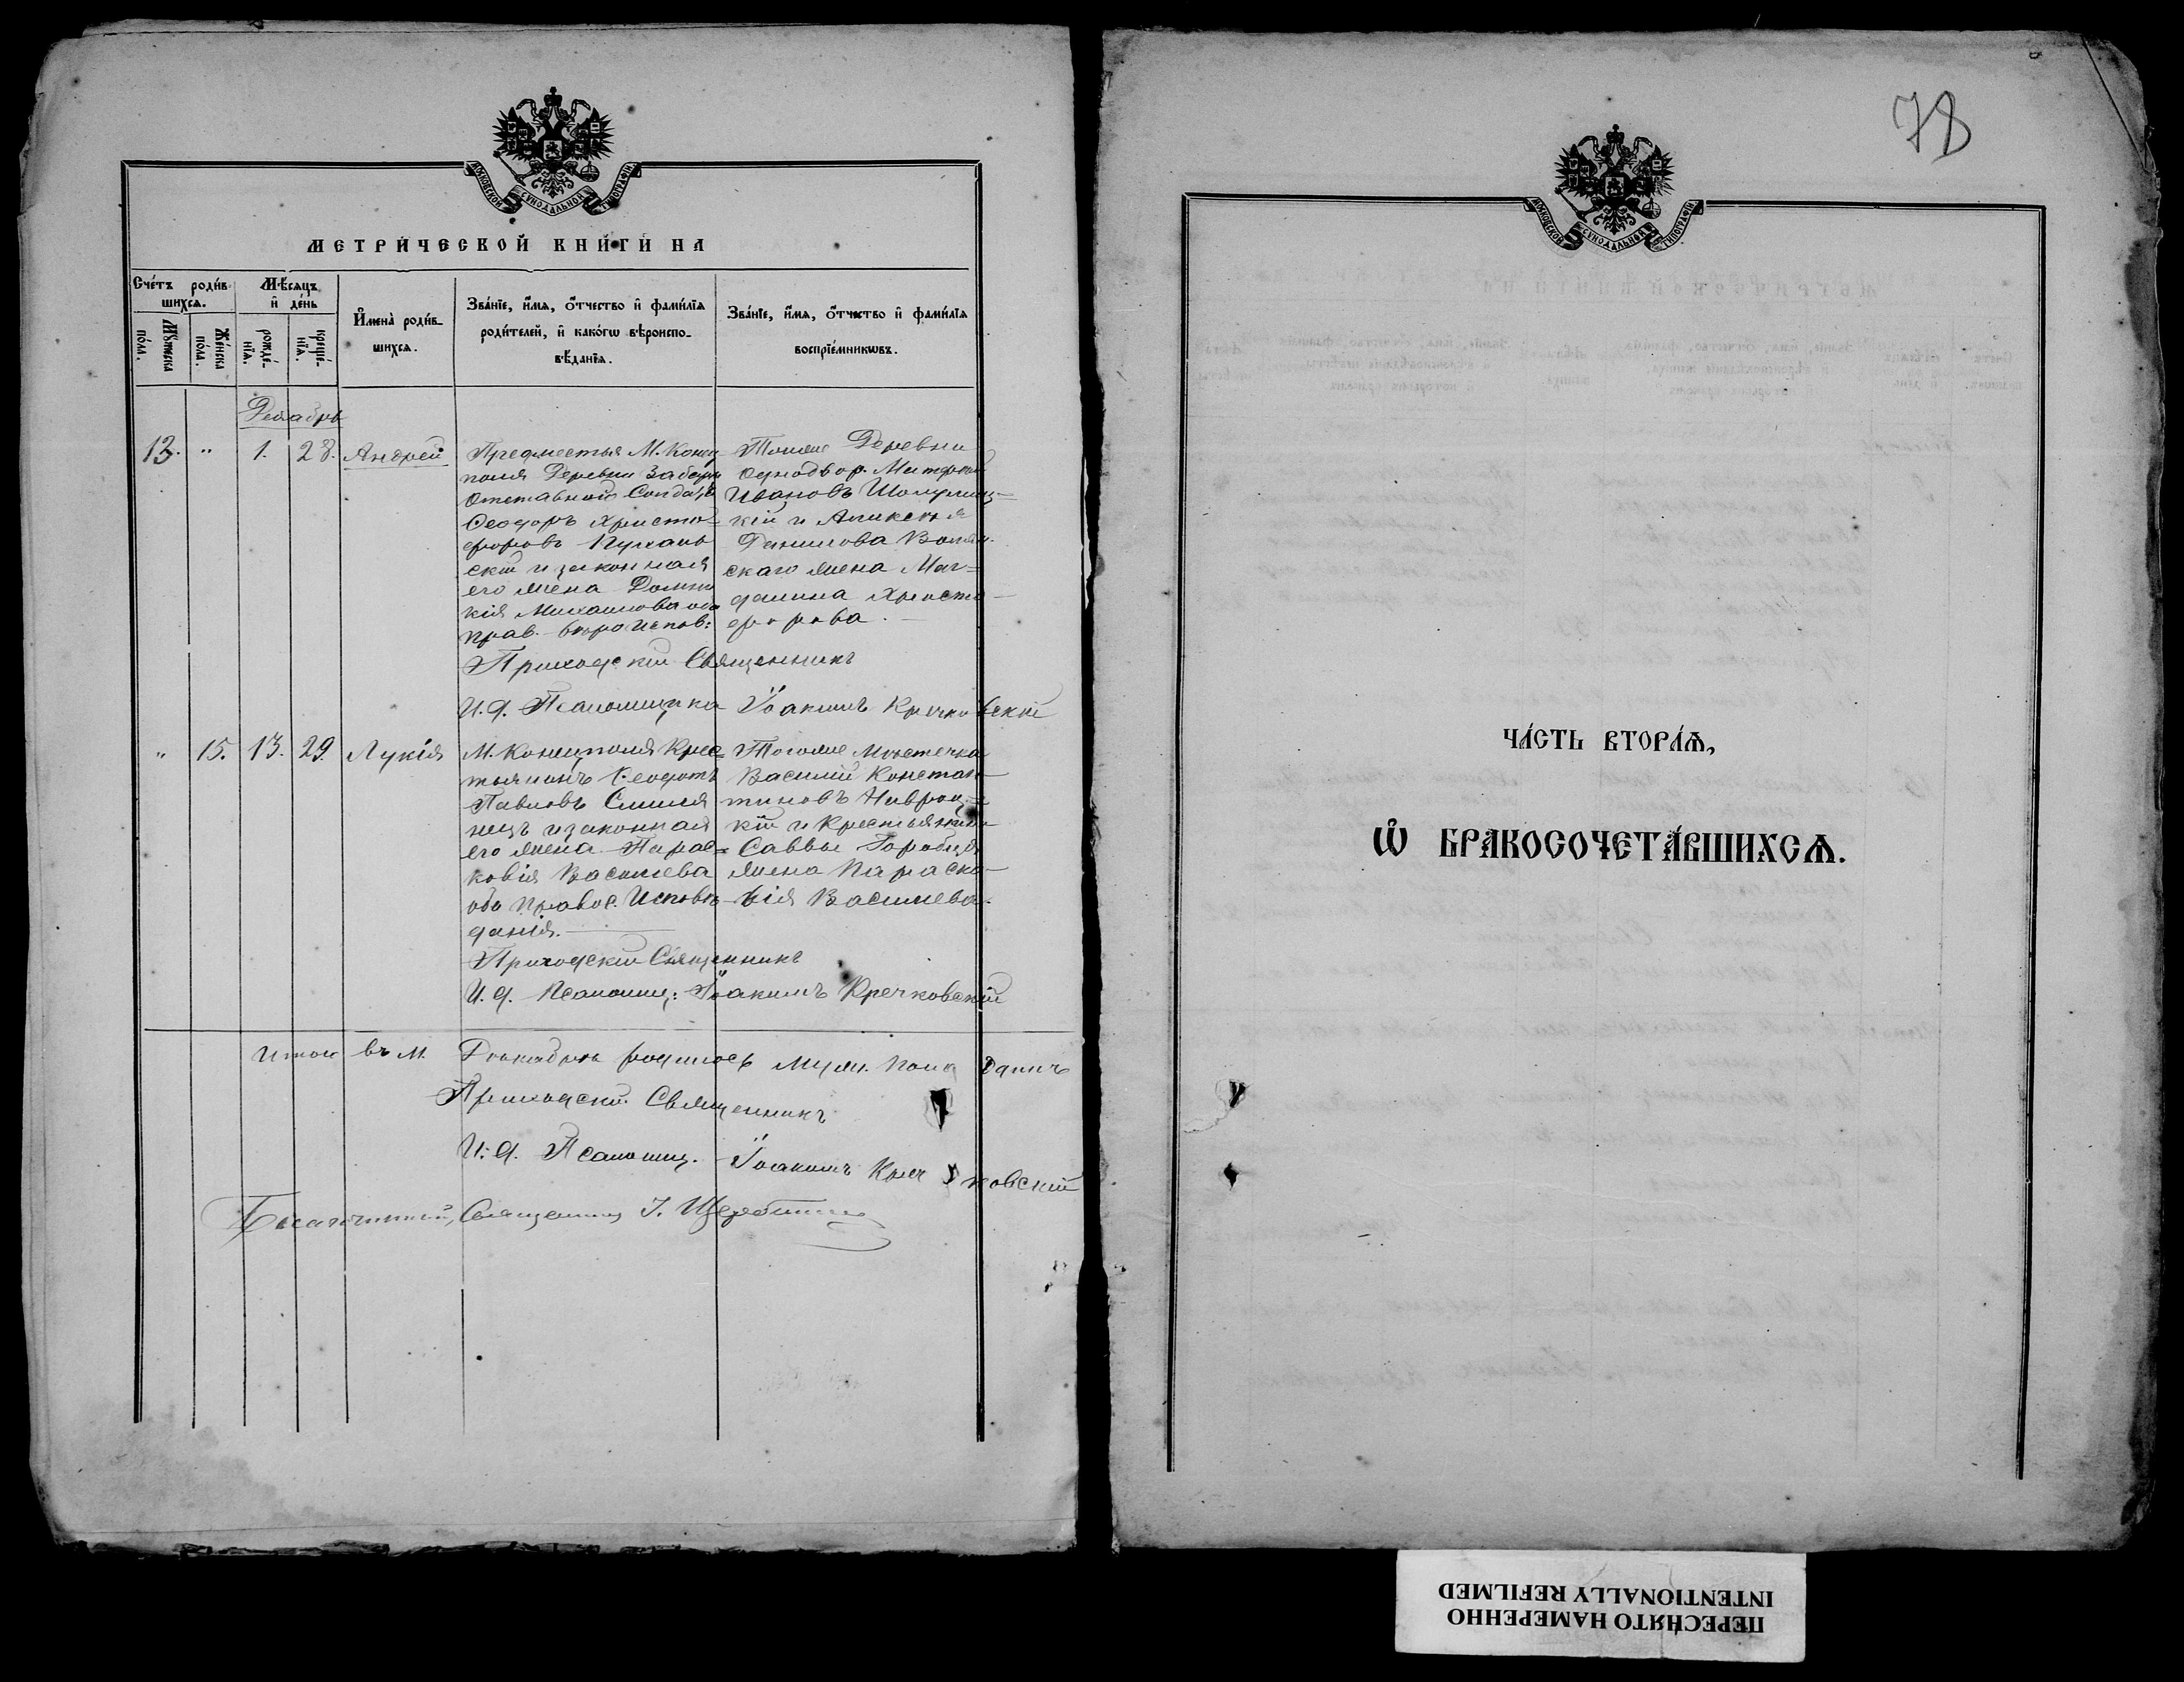 МОСКОВСКОЙ СѴНОДАЛЬНОЙ ТИПОГРАФІИ
МЕТРИ́ЧЕСКОЙ КНИ́ГИ НА
Сче́тъ роди́вшихсѧ.
Мѣ́сѧцъ и҆ де́нь
И҆мена̀ роди́вшихсѧ.
Зва́нїе, и҆́мѧ, ѻ҆́тчество и҆ фами́лїѧ
роди́телей, и҆ како́гѡ вѣроиспо-
вѣ́данїѧ.
Зва́нїе, и҆́мѧ, ѻ҆́тчество и҆ фами́лїѧ
воспрїе́мникѡвъ.
Мꙋ́жеска по́ла.
Же́нска по́ла
рожде́-нїѧ.
креще́-нїѧ.
Декабрь
13. " 1. 28. Андрей
Предместья М. Конец
поля Деревни
Отставной Солдатъ
Ѳеодоръ Христо-
форовъ
скій и законная
его жена Домни
кія Михаилова оба
прав. вѣроиспов:
Тоиже Деревни
однодвор.
Ивановъ
кій и
Данилова
скаго жена Маг-
далина Христо-
форова.
Приходскій Священникъ
И. д. Псаломщика Іоакимъ Кречковскій
" 15. 13. 29. Лукія
М. Конецполя Крес-
тьянинъ Ѳеодотъ
Павловъ
нецъ и законная
его жена Парас-
ковія Василева
оба Правос. Исповѣ-
данія.
Тогоже Мѣстечка
Василій Констан-
тиновъ Навроц-
кій и Крестьянина
Саввы Горобца
жена Параско-
вія Василева.
Приходскій Священникъ
И. д. Псаломщ: Іоакимъ Кречковскій
Итого въ М. Декабрѣ родилось муж. пола одинъ
Приходскій Священникъ
И. д. Псаломщ. Іоакимъ Кречковскій
Благочинный, Священникъ І.
78
МОСКОВСКОЙ СѴНОДАЛЬНОЙ ТИПОГРАФІИ
ЧА́СТЬ ВТОРА́Ѧ,
Ѡ҆ БРАКОСОЧЕТА́ВШИХСѦ.
ПЕРЕСНЯТО НАМЕРЕННО
INTENTIONALLY REFILMED